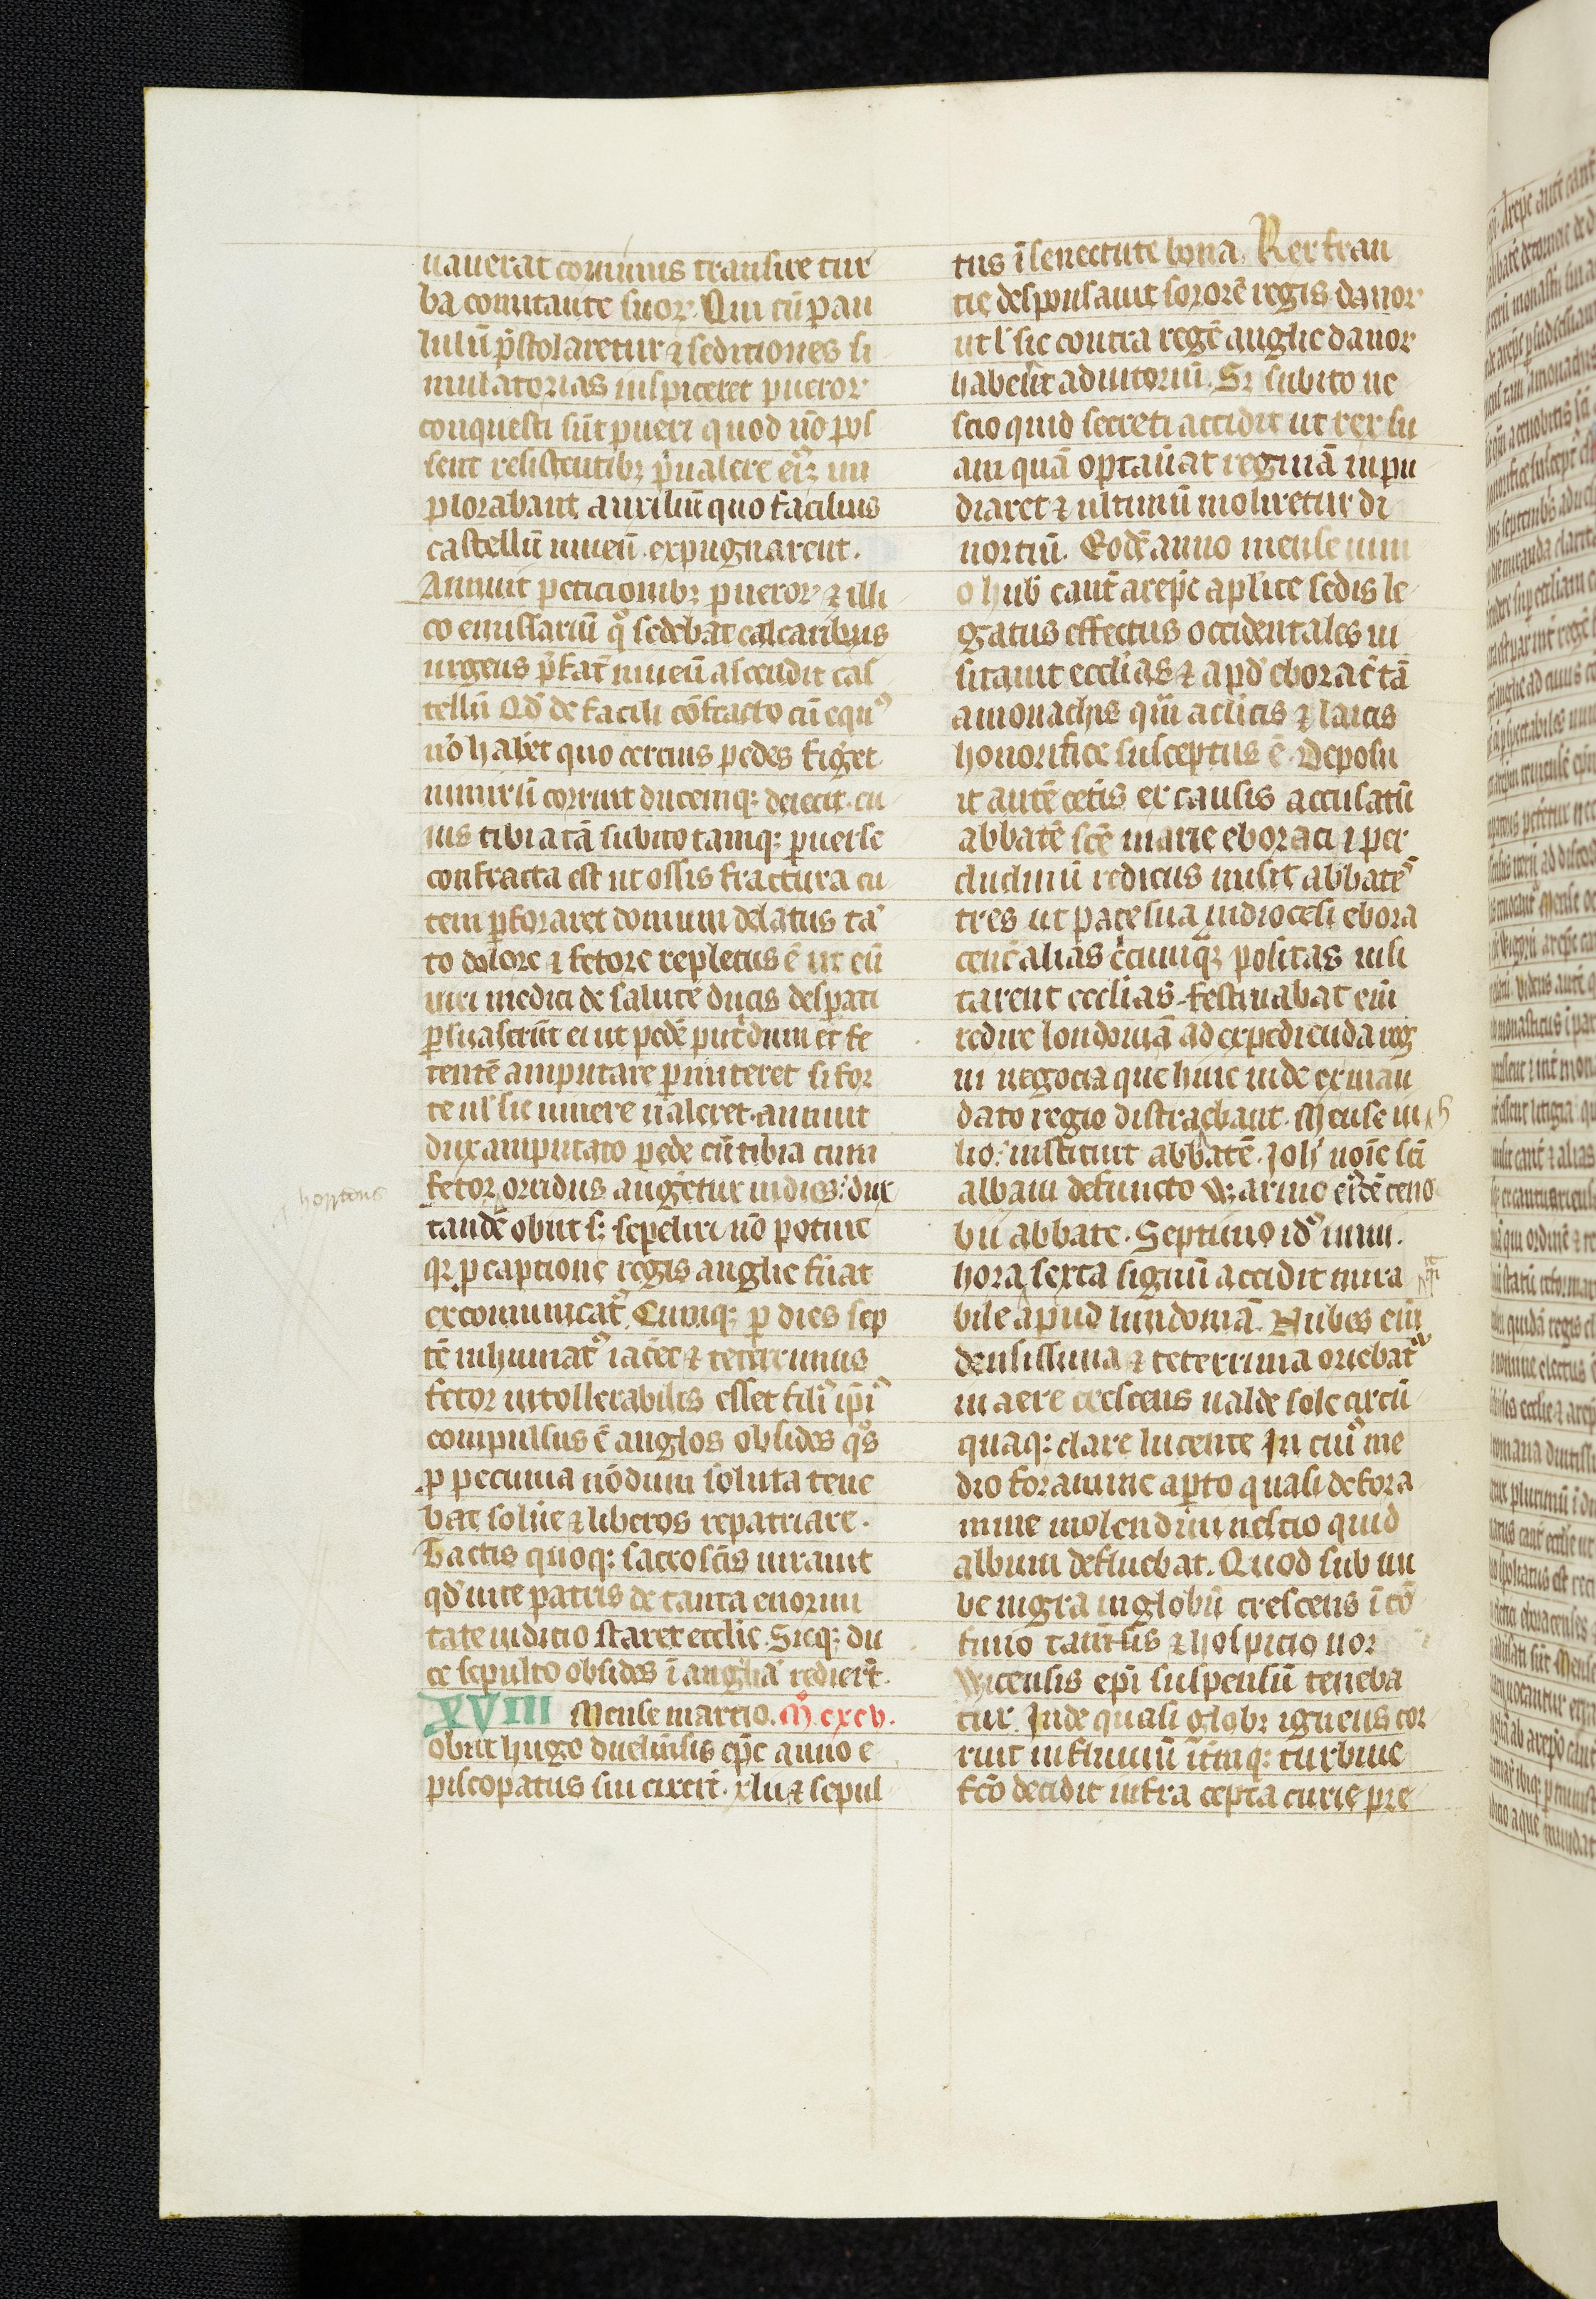 nauerat cominus transire tur
ba comitante suoꝝ. Qui cū pau
lulū p̄stolaretur ⁊ seditiones si
mulatorias inspiceret pueroꝝ
conquesti sūt pueri quod nō pos
sent resistentibꝫ p̄ualere eiꝰꝫ im
plorabant auxiliū quo facilius
castellū niueū expugnarent.
Annuit peticionibꝫ pueroꝝ ⁊ illi
co emissariū qͦ sedebat calcaribus
urgens p̄fat̄ niueū ascendit cas
tellū Qd̓ de facili cōfracto cū equꝰ
nō hab̓et quo cercius pedes fig̓et
nimirū corruit ducemqꝫ deiecit. cu
ius tibia tā subito tamqꝫ ꝑuerse
confracta est ut ossis fractura cu
tem ꝑforaret domum delatus tā
to dolore ⁊ fetore repletus ē ut eū
uiri medici de salute ducis desꝑati
ꝑsuaserūt ei ut pedē put̓dum et fe
tentē amputare ꝑmitteret si for
te ul̓ sic uiuere ualeret. annuit
dux amputato pede cū tibia cum
fetor oricidus augetur indies: dux
hortens
tandē obiit sꝫ sepeliri nō potuit
qꝛ ꝓ captione regis anglie fūat
excommunicatꝰ. Cumqꝫ ꝑ dies sep
tē inhumatꝰ iac̓et ⁊ teterrimus
fetor intollerabilis esset filiꝰ ip̄iꝰ
compulsus ē anglos obsides qͦs
ꝓ pecunia nōdum soluta tene
bat solu̓e ⁊ liberos repatriare.
Tactis quoqꝫ sacrosc̄is iurauit
qd̓ uice patris de tanta enormi
tate iudicio staret eccl̓ie. Sicqꝫ du
ce sepulto obsides ī angliā redierūt.
XVIII Mense martio. Mͦ. cxcv.
obiit hugo duelm̄sis ep̄c anno e
piscopatus sui circit̓. xlii ⁊ sepul
tus ī senectute bona. Rex fran
cie desponsauit sororē regis danoꝝ
ut l̓ sic contra regē anglie danoꝝ
habe̓t adiutoriū. Sꝫ subito ne
scio quid secreti accidit ut rex su
am quā optau̓at reginā inpu
diaret ⁊ ultimū moliretur di
uortiū. Eodē anno mense iuni
o hub̓ cant̄ arep̄c ap̄lice sedis le
gatus effectus occidentales ui
sitauit eccl̓ias ⁊ apd̓ eborac̄ tā
a monachis qͣm a cl̓icis ⁊ laicis
honorifice susceptus ē. Deposu
it autē cet̓is ex causis accusatū
abbatē sc̄e marie eboraci ⁊ per
duelmū rediens misit abbatēs
tres ut ꝑ acē suā in diocesi ebora
cen̄ alias ēcumqꝫ positas uisi
tarent eccl̓ias. festinabat eni̓
redire londoniā ad expedienda reg
ni negocia que huic inde ex man
dato regio distrahant. Mense iu
lio: instituit abbatē. Joh̓ noīe sc̄i
albani defuncto Warino eiꝰdē ceno
bii abbate. Septimo idꝰ iunii.
hora sexta signū accidit mira
bile apud lundoniā. Nubes eni̓
densissima ⁊ teterrima oriebatꝰ
in aere crescens ualde sole circū
quaqꝫ clare lucente In cuiꝰ me
dio foramine aꝑto quasi de fora
mine molendini nescio quid
album defluebat. Quod sub nu
be nigra in globū crescens ī cō
finio ⁊ hospicio nor
wicensis ep̄i suspensū teneba
tur. Inde quasi globꝫ igneus cor
ruit in fluuiū turbine
fc̄o decidit infra cepta curie pre